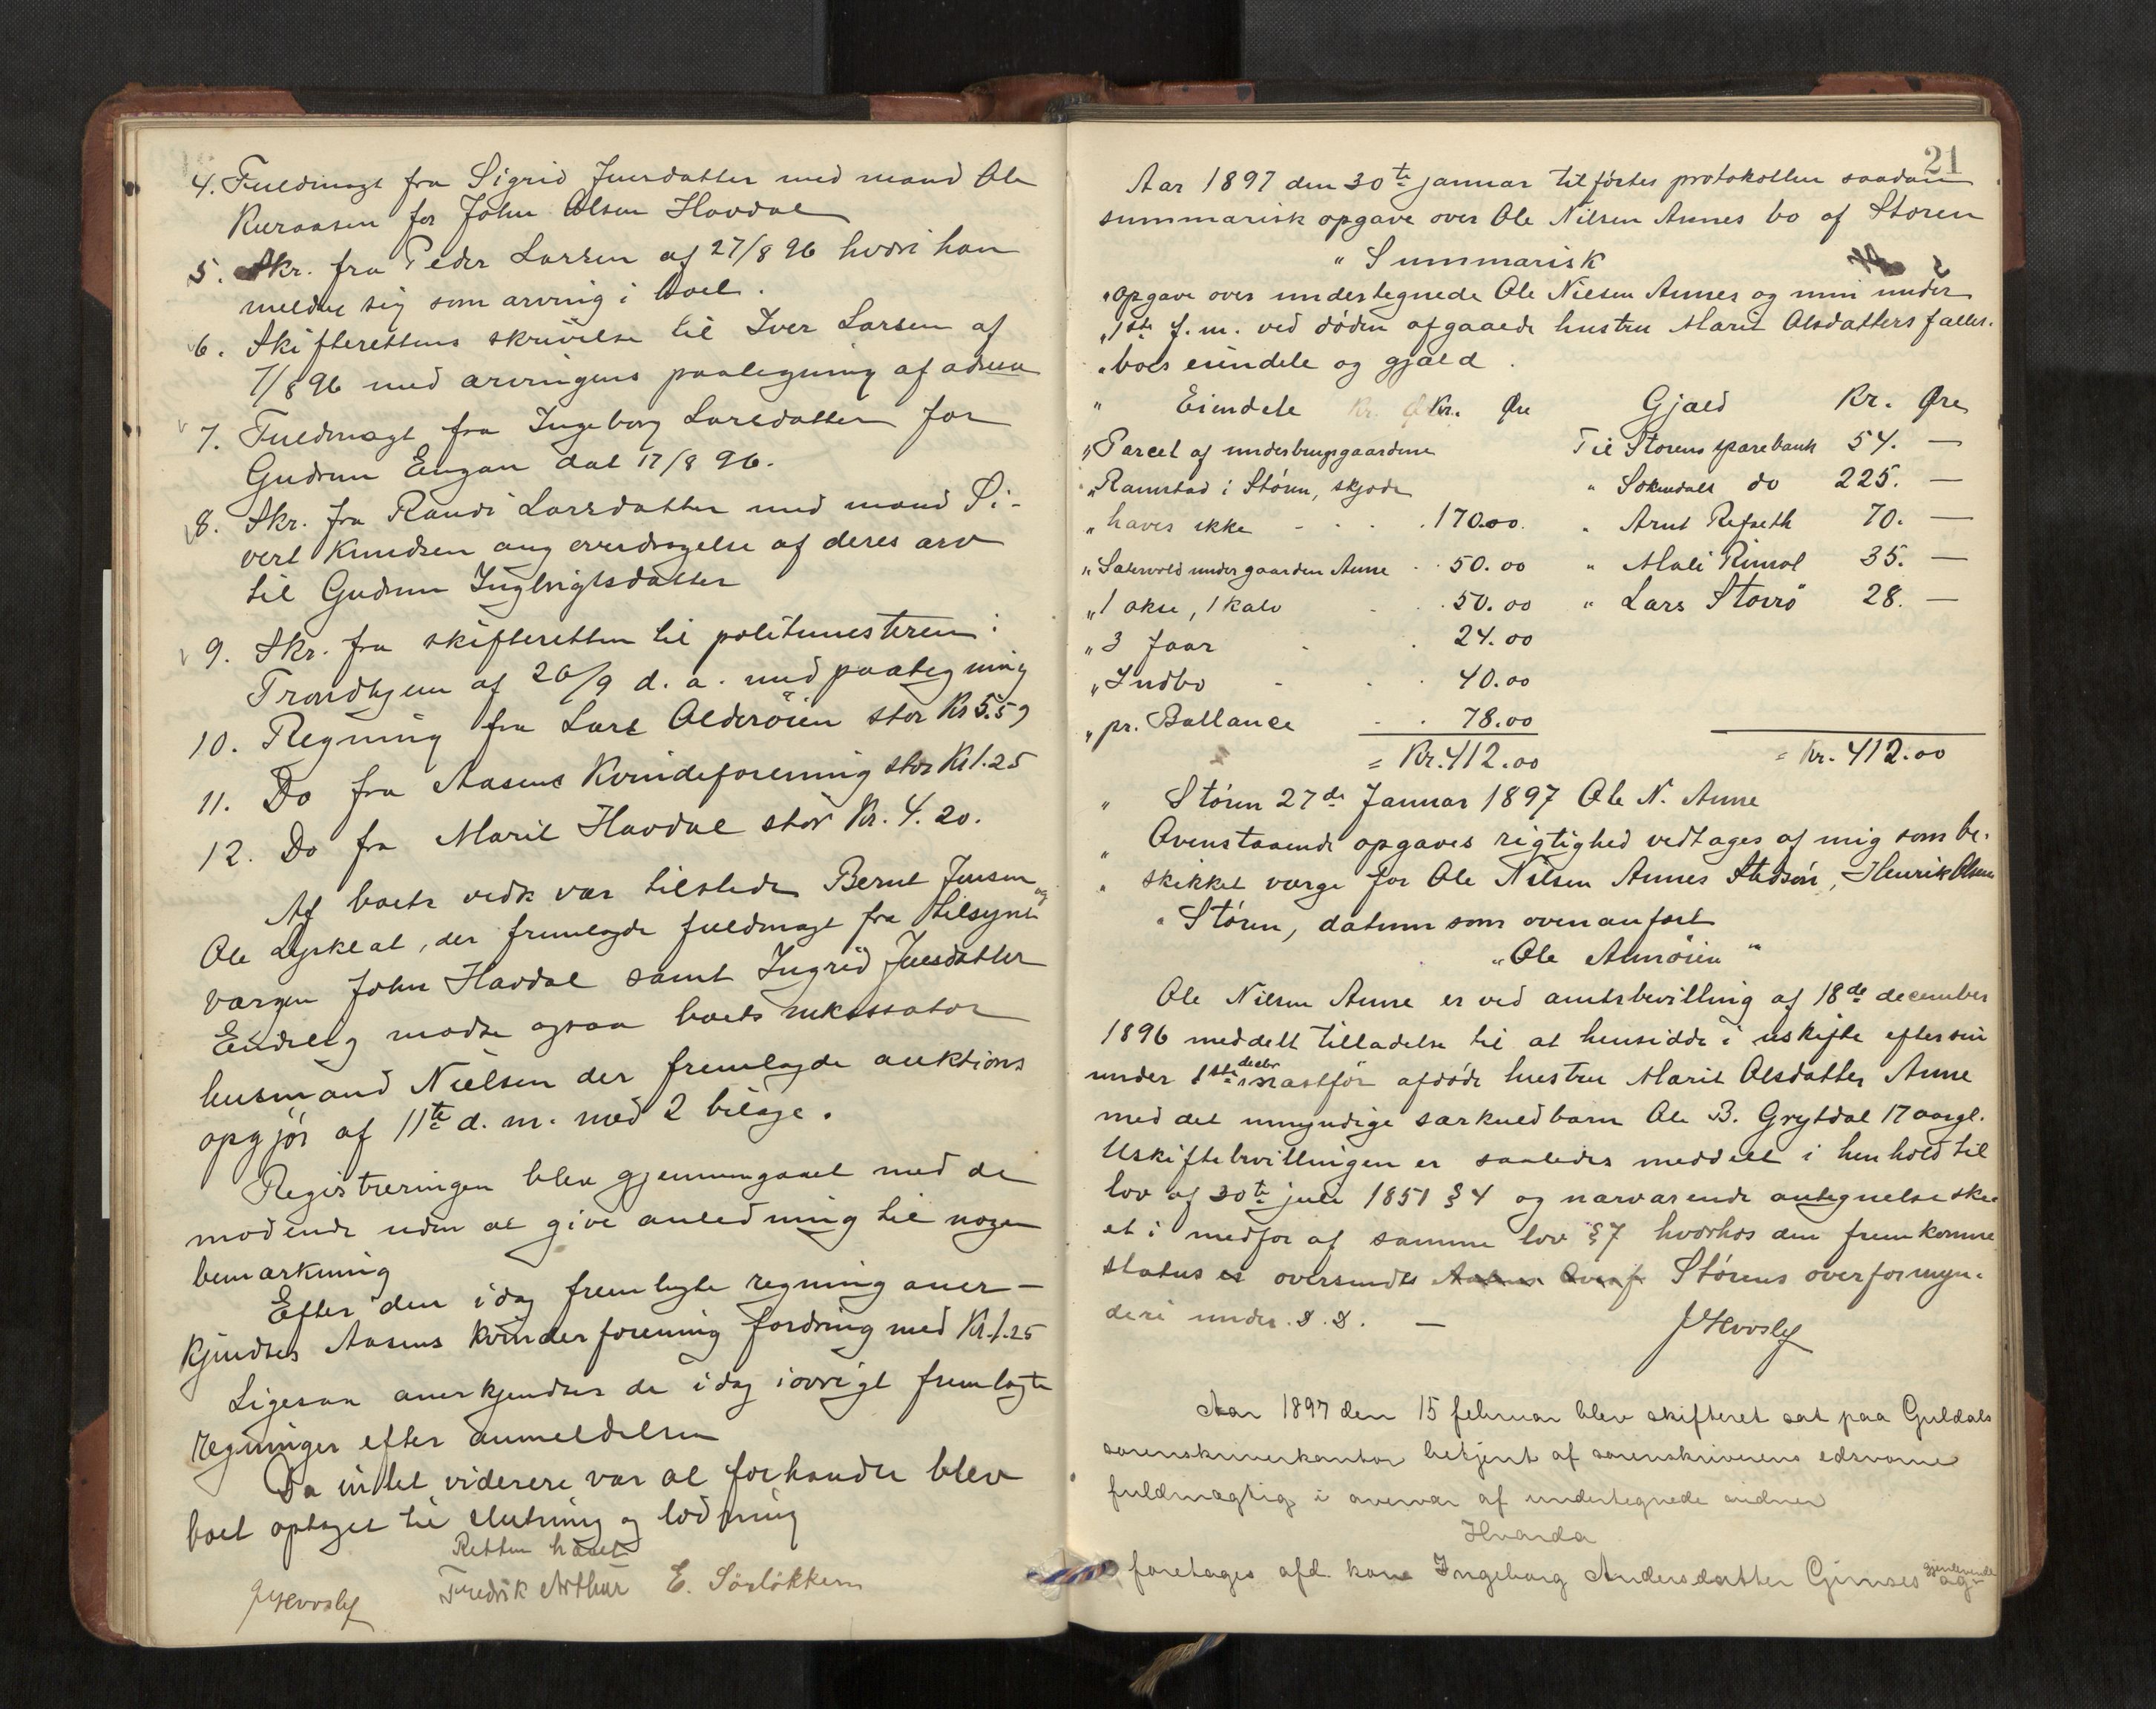 4. Fuldmagt fra Sigrid Jensdatter med mand Ole
for John Olsen Havdal
5. Skr. fra Peder Larsen af 27/8 96 hvori han
melder sig som arving i boet.
6. Skifterettens skrivelse til Iver Larsen af
7/8 96 med arvingens paategning af
7. Fuldmagt fra Ingeborg Larsdatter for
Gudrun Engan dat 17/8 96.
8. Skr. fra Randi Larsdatter med mand Si-
vert Knudsen ang overdragelse af deres arv
til Gudrun Ingbrigtsdatter
9. Skr. fra skifteretten til politimesteren i
Trondhjem af 26/9 d. a. med paategning
10. Regning fra Lars Alderøien stor Kr 5.59
11. Do fra Aasens Kvindeforening stor Kr 1.25
12. Do fra Marit Havdal stor Kr. 4.20.
Af boets vedk var tilstede Bernt Jensen og
Ole, der fremlagde fuldmagt fra tilsyns
værgen John Havdal samt Ingrid Jensdatter
Endelig mødte ogsaa boets inkassator
husmand Nielsen der fremlagde auktions
opgjør af 11te d. m. med 2 bilage.
Registreringen blev gjennemgaaet med de
mødende uden at give anledning til nogen
bemærkning
Efter den i dag fremlagte regning aner-
kjendtes Aasens kvindeforening fordring med Kr. 1.25
Ligesaa anerkjendtes de i dag iøvrigt fremlagte
regninger efter anmeldelsen
Da intet viderere var at forhandle blev
boet optaget til slutning og lodning
Retten hævet
JHvoslef Fredrik Arthur E. Sörlökken
21
Aar 1897 den 30te januar tilførtes protokollen saadan
summarisk opgave over Ole Nilsen Annes bo af Støren
" Summarisk
" opgave over undertegnede Ole Nielsen Annes og min under
" 1ste f. m. ved døden afgaaede hustru Marit Olsdatters fælles-
" boes eiendele og gjæld.
" Eiendele Kr. Øre Gjæld Kr. Øre
" Parcel af underbrugsgaardene Til Størens sparebank 54. —
" Ramstad i Støren, skjøde " Soknedals do 225. —
" haves ikke 170.00. " Arnt Refseth 70. —
" Sætervold under gaarden Anne 50.00 " Mali Rimol 35. —
" 1 okse, 1 kalv 50.00 " Lars Storrø 28. —
" 3 faar 24.00
" Indbo 40.00
" pr. Ballance 78.00
= Kr. 412.00 = Kr. 412.00
" Støren 27de Januar 1897 Ole N. Anne
" Ovenstaaende opgaves rigtighed vedtages af mig som be-
" skikket værge for Ole Nilsen Annes Stedsøn, Henrik Olsen
" Støren, datum som ovenanført
" Ole Almøien "
Ole Nilsen Anne er ved amtsbevilling af 18de december
1896 meddelt tilladelse til at hensidde i uskifte efter sin
under 1ste decbr næstfør afdøde hustru Marit Olsdatter Anne
med det umyndige særkuldbarn Ole B. Grytdal 17 aar gl.
Uskiftebevillingen er saaledes meddelt i henhold til
lov af 30te juli 1851 § 4 og nærværende antegnelse ske-
et i medfør af samme lov § 7 hvorhos den fremkomne
status er oversendt Størens overformyn-
deri under. D. D. —
JHvoslef
Aar 1897 den 15 februar blev skifteret sat paa Guldals
sorenskriverkontor betjent af sorenskriverens edsvorne
fuldmægtig i overvær af undertegnede vidner
Hvorda
foretages afd. kone Ingeborg Andersdatter Gimses gjenlevende og